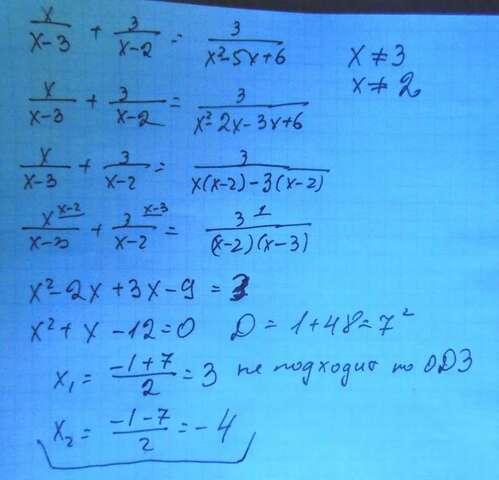 x/(x-3) + 3/(x-2) = 3/(x²-5x+6) x ≠ 3
x ≠ 2
x/(x-3) + 3/(x-2) = 3/(x²-2x-3x+6)
x/(x-3) + 3/(x-2) = 3/(x(x-2)-3(x-2))
x^(x-2)/(x-3) + 3^(x-3)/(x-2) = 3^1/((x-2)(x-3))
x²-2x+3x-9=3
x²+x-12=0 D=1+48=7²
x₁ = (-1+7)/2 = 3 не подходит по ОДЗ
x₂ = (-1-7)/2 = -4